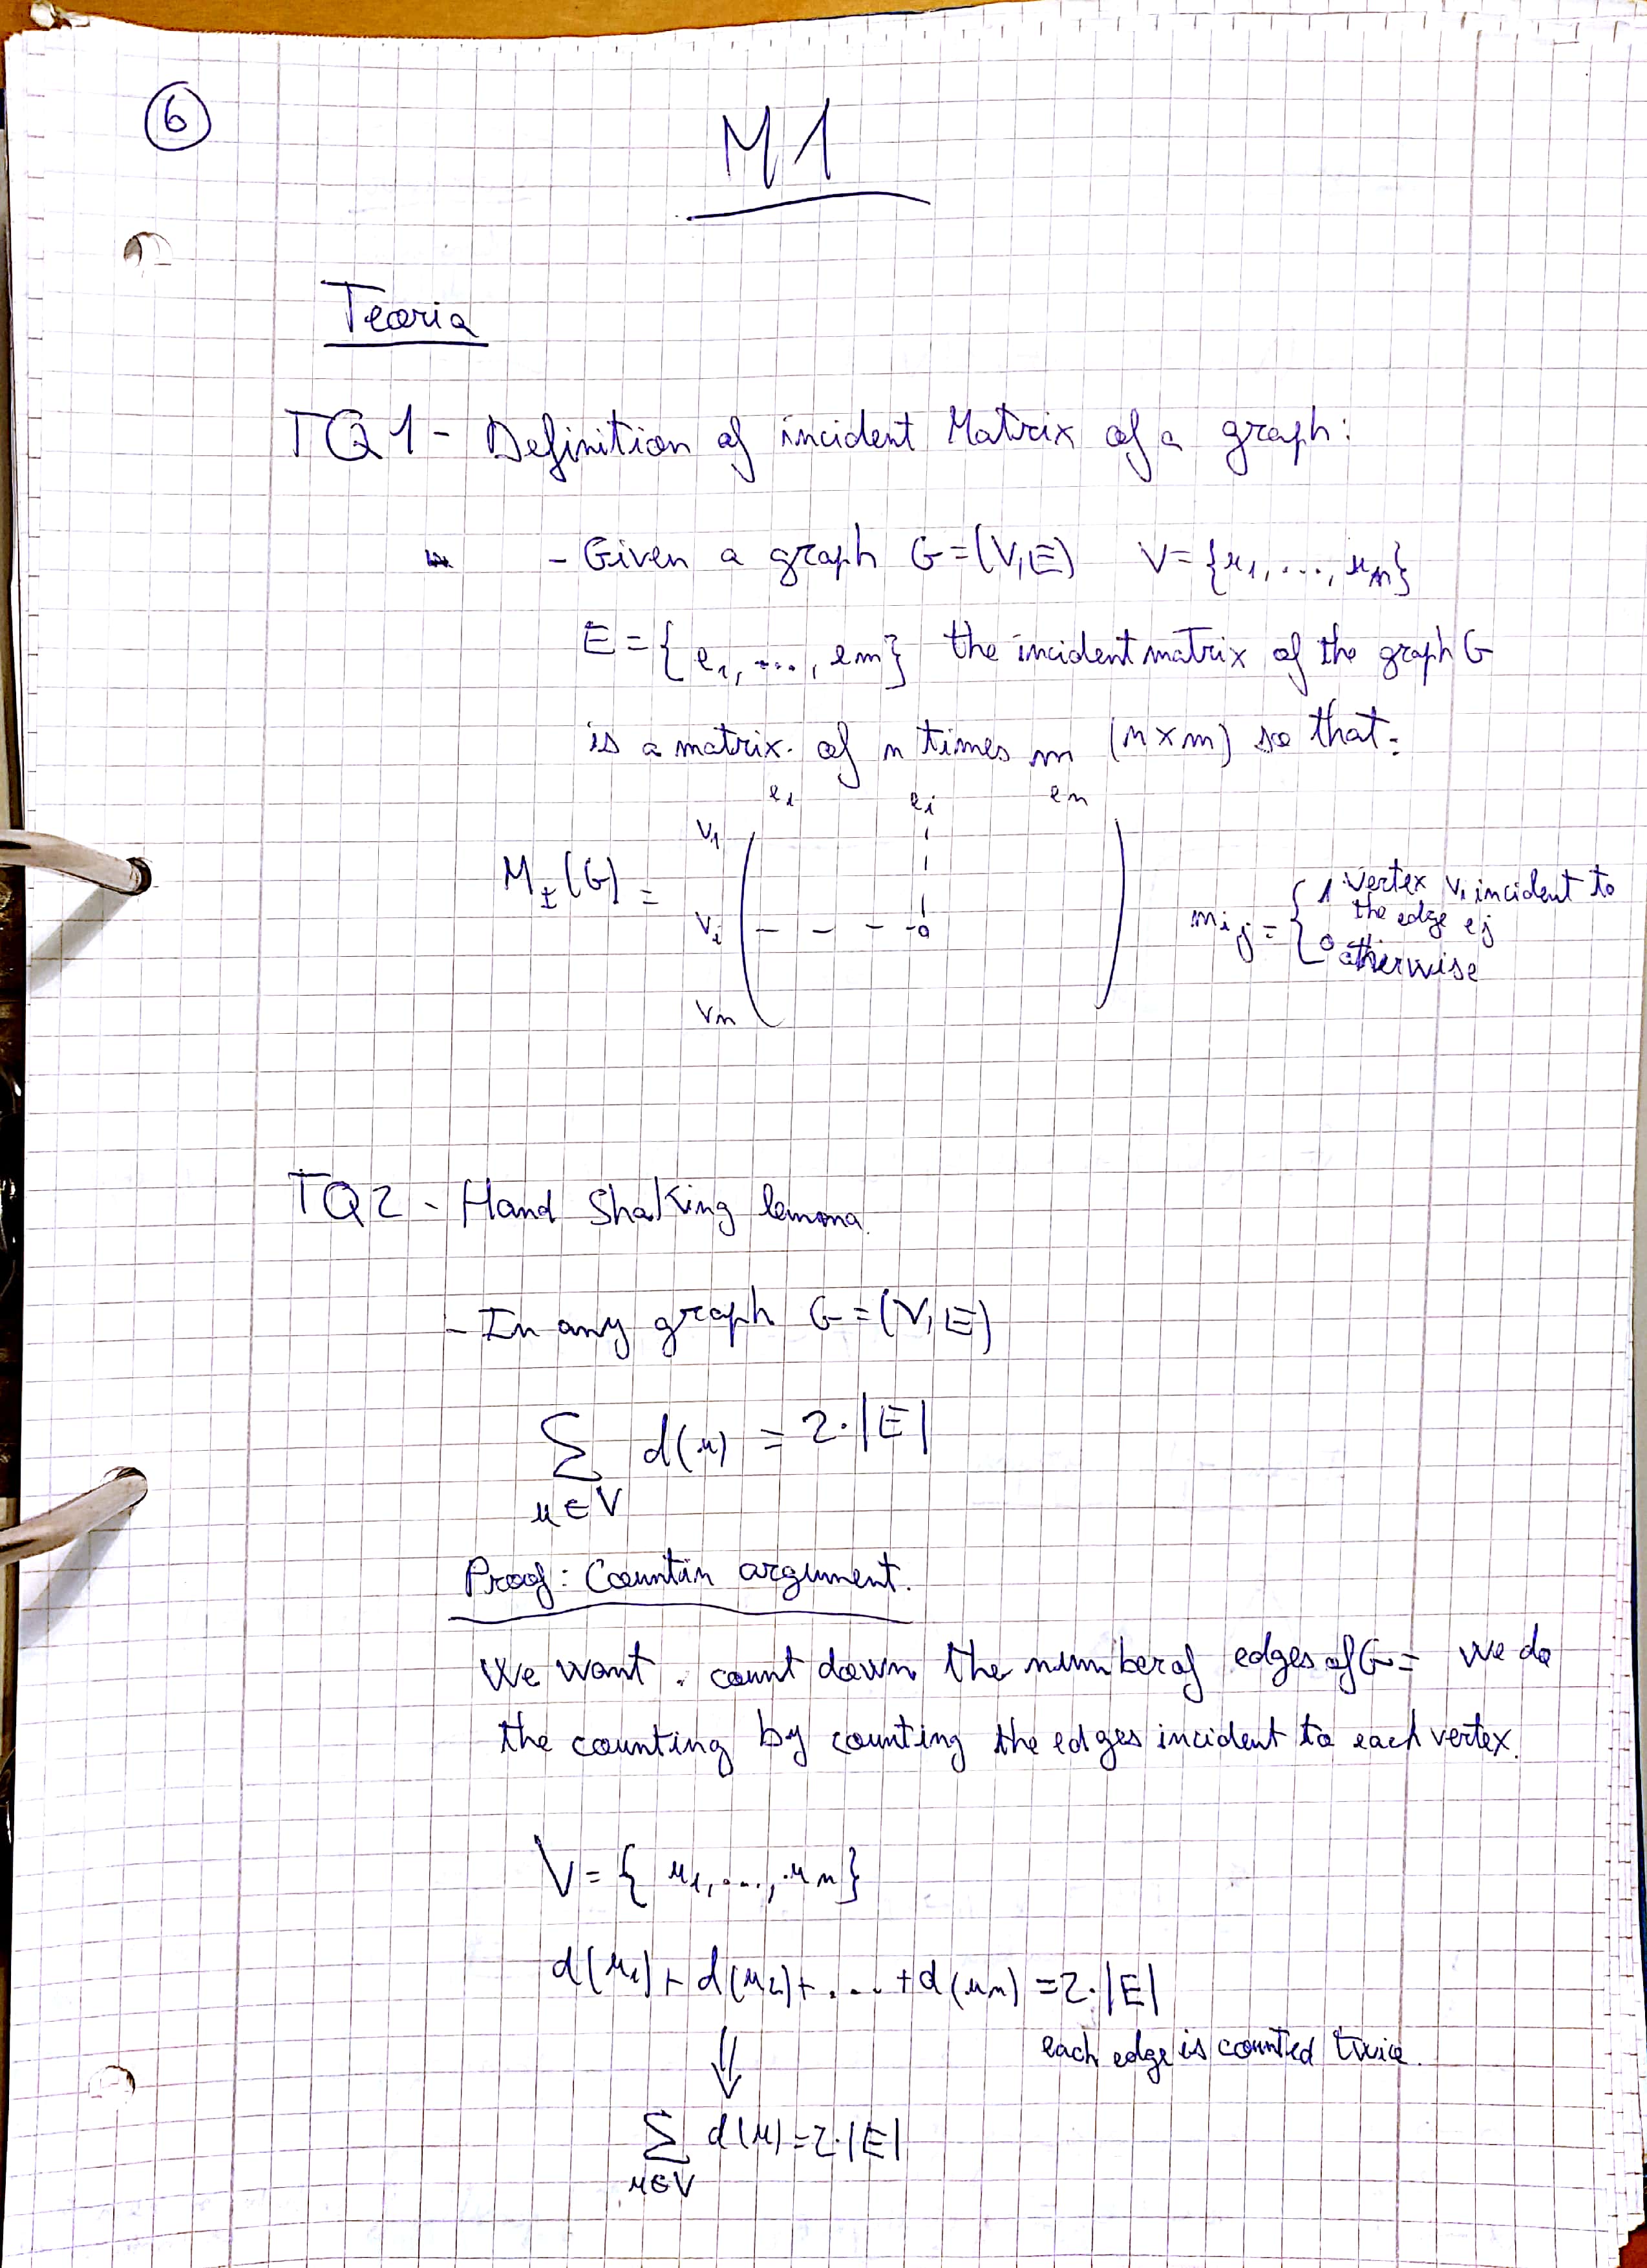 6
M1
Teoria
TQ1- Definition of incident Matrix of a graph:
- Given a graph G=(V,E) V={u1,...,un}
E={e1,...,em} the incident matrix of the graph G
is a matrix of n times m (n×m) so that:
e1 ei en
v1
MI(G)=
vi
vn
mij={1 Vertex vi incident to
the edge ej
0 otherwise
TQ2 - Hand Shaking lemma.
- In any graph G=(V,E)
∑ d(u) = 2·|E|
u∈V
Proof: Countin argument.
We want count down the number of edges of G= we do
the counting by counting the edges incident to each vertex.
V={u1,...,un}
d(u1)+d(u2)+...+d(un)=2·|E|
each edge is counted twice.
⇓
∑ d(u)=2·|E|
u∈V